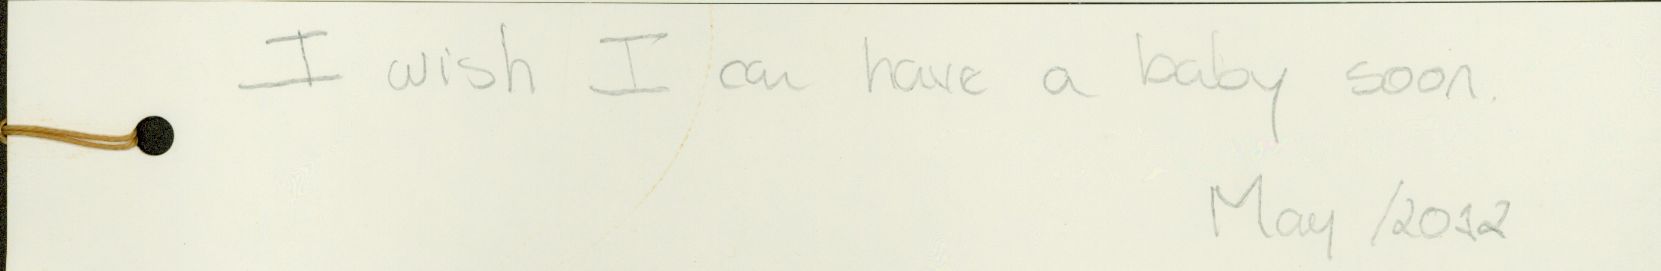 I wish I can have a baby soon.
May /2012